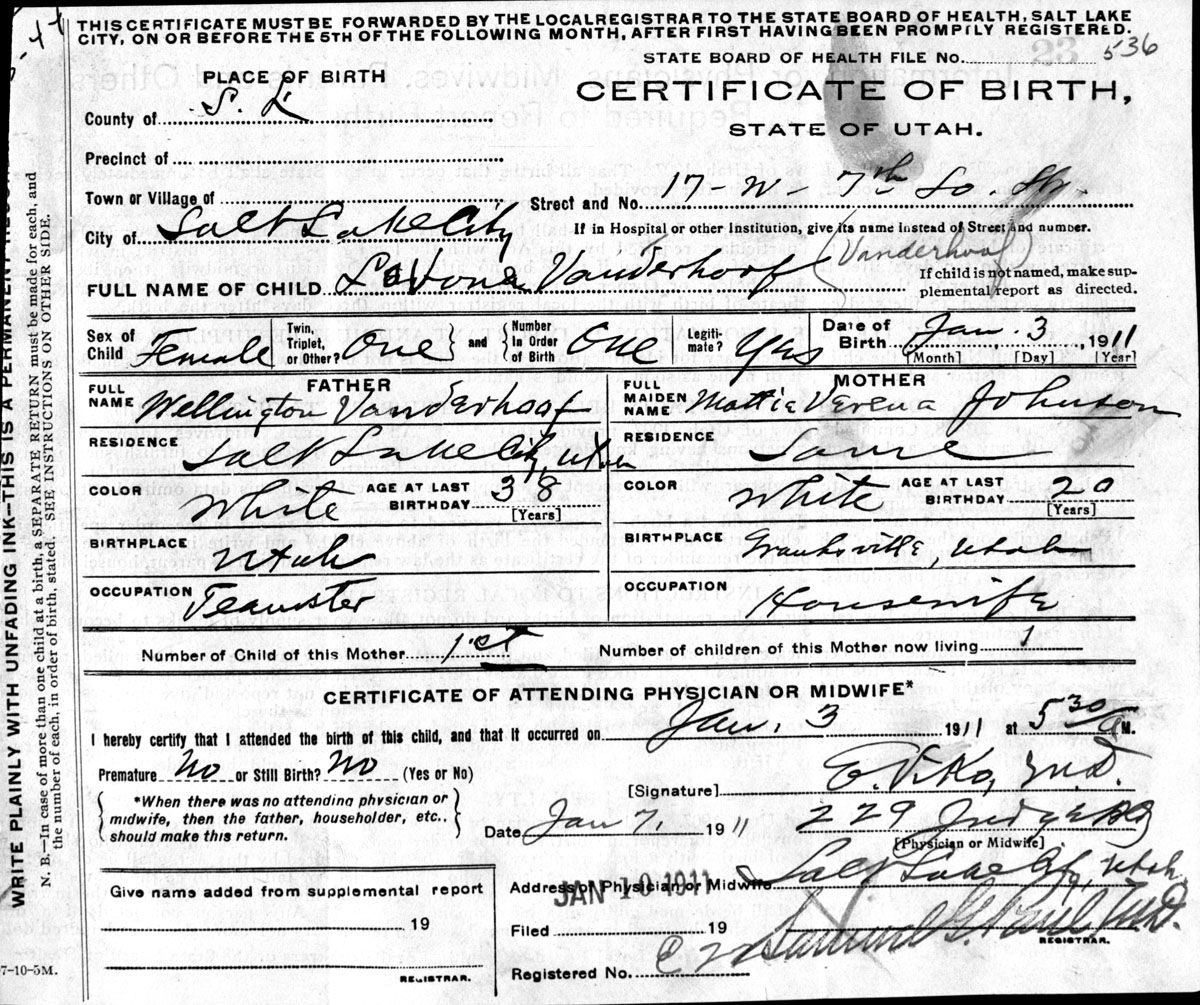 THIS CERTIFICATE MUST BE FORWARDED BY THE LOCAL REGISTRAR TO THE STATE BOARD OF HEALTH, SALT LAKE
CITY, ON OR BEFORE THE 5TH OF THE FOLLOWING MONTH, AFTER FIRST HAVING BEEN PROMPTLY REGISTERED.
STATE BOARD OF HEALTH FILE No. 536
PLACE OF BIRTH
CERTIFICATE OF BIRTH,
STATE OF UTAH.
County of S. L
Precinct of
Town or Village of
Street and No. 17-W- 7th So. St.
City of Salt Lake City
If in Hospital or other Institution, give its name instead of Street and number.
FULL NAME OF CHILD LaVona Vanderhoof (Vanderhoof
If child is not named, make sup-
plemental report as directed.
Sex of Child Female Twin, Triplet, or Other? One and Number In Order of Birth One Legiti- mate? Yas Date of Birth Jan. 3, 1911
[Month] [Day] [Year]
FATHER
MOTHER
FULL NAME Wellington Vanderhoof
FULL MAIDEN NAME Mattie Verena Johnson
RESIDENCE Salt Lake City, Utah
RESIDENCE Same
COLOR White AGE AT LAST BIRTHDAY 38 [Years]
COLOR White AGE AT LAST BIRTHDAY 20 [Years]
BIRTHPLACE Utah
BIRTHPLACE Grantsville, Utah
OCCUPATION Teamster
OCCUPATION Housewife
Number of Child of this Mother 1st
Number of children of this Mother now living 1
CERTIFICATE OF ATTENDING PHYSICIAN OR MIDWIFE*
I hereby certify that I attended the birth of this child, and that it occurred on Jan. 3 1911 at 5 30 a M.
Premature No or Still Birth? No (Yes or No)
[Signature] M.D.
*When there was no attending physician or
midwife, then the father, householder, etc.,
should make this return.
Date Jan 7, 1911
229 Judge Bldg
[Physician or Midwife]
Address of Physician or Midwife Salt Lake City, Utah
JAN 10 1911
Give name added from supplemental report
19
REGISTRAR.
Filed 19
Registered No.
M.D.
REGISTRAR.
7-10-5M.
WRITE PLAINLY WITH UNFADING INK—THIS IS A PERMANENT
N. B.—In case of more than one child at a birth, a SEPARATE RETURN must be made for each, and
the number of each, in order of birth, stated. SEE INSTRUCTIONS ON OTHER SIDE.